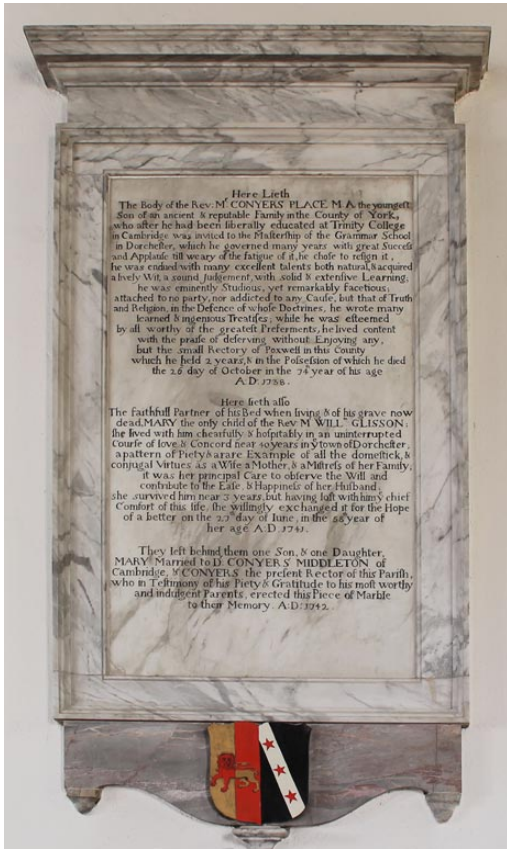 Here Lieth
The Body of the Rev: Mr CONYERS PLACE M A the youngeſt
Son of an ancient & reputable Family in the County of York,
who after he had been liberally educated at Trinity College
in Cambridge was invited to the Maſterſhip of the Grammar School
in Dorcheſter, which he governed many years with great Succeſs
and Applauſe till weary of the fatigue of it, he choſe to reſign it,
he was endued with many excellent talents both natural, & acquired
a lively Wit, a sound Judgement, with solid & extenſive Learning,
he was eminently Studious, yet remarkably facetious;
attached to no party, nor addicted to any Cauſe, but that of Truth
and Religion, in the Defence of whoſe Doctrines, he wrote many
learned & ingenious Treatiſes; while he was eſteemed
by all worthy of the greateſt Preferments, he lived content
with the praiſe of deſerving without Enjoying any,
but the small Rectory of Poxwell in this County
which he held 2 years, & in the Poſseſsion of which he died
the 26 day of October in the 74 year of his age
A:D:1738.
Here lieth alſo
The faithfull Partner of his Bed when living & of his grave now
dead, MARY the only child of the Rev Mr WILLm GLISSON;
ſhe lived with him chearfully & hoſpitably in an uninterrupted
Courſe of love & Concord near 40 years in ye town of Dorcheſter,
a pattern of Piety & a rare Example of all the domeſtick, &
conjugal Virtues as a Wife a Mother, & a Miſtreſs of her Family;
it was her principal Care to obſerve the Will and
contribute to the Eaſe, & Happineſs of her Huſband,
she survived him near 3 years, but having loſt with him ye chief
Comfort of this life, ſhe willingly exchanged it for the Hope
of a better on the 27 day of Iune, in the 58 year of
her age A:D:1741.
They left behind them one Son, & one Daughter,
MARY Married to Dr. CONYERS MIDDLETON of
Cambridge, & CONYERS the preſent Rector of this Pariſh,
who in Teſtimony of his Piety & Gratitude to his moſt worthy
and indulgent Parents, erected this Piece of Marble
to their Memory. A:D:1742.